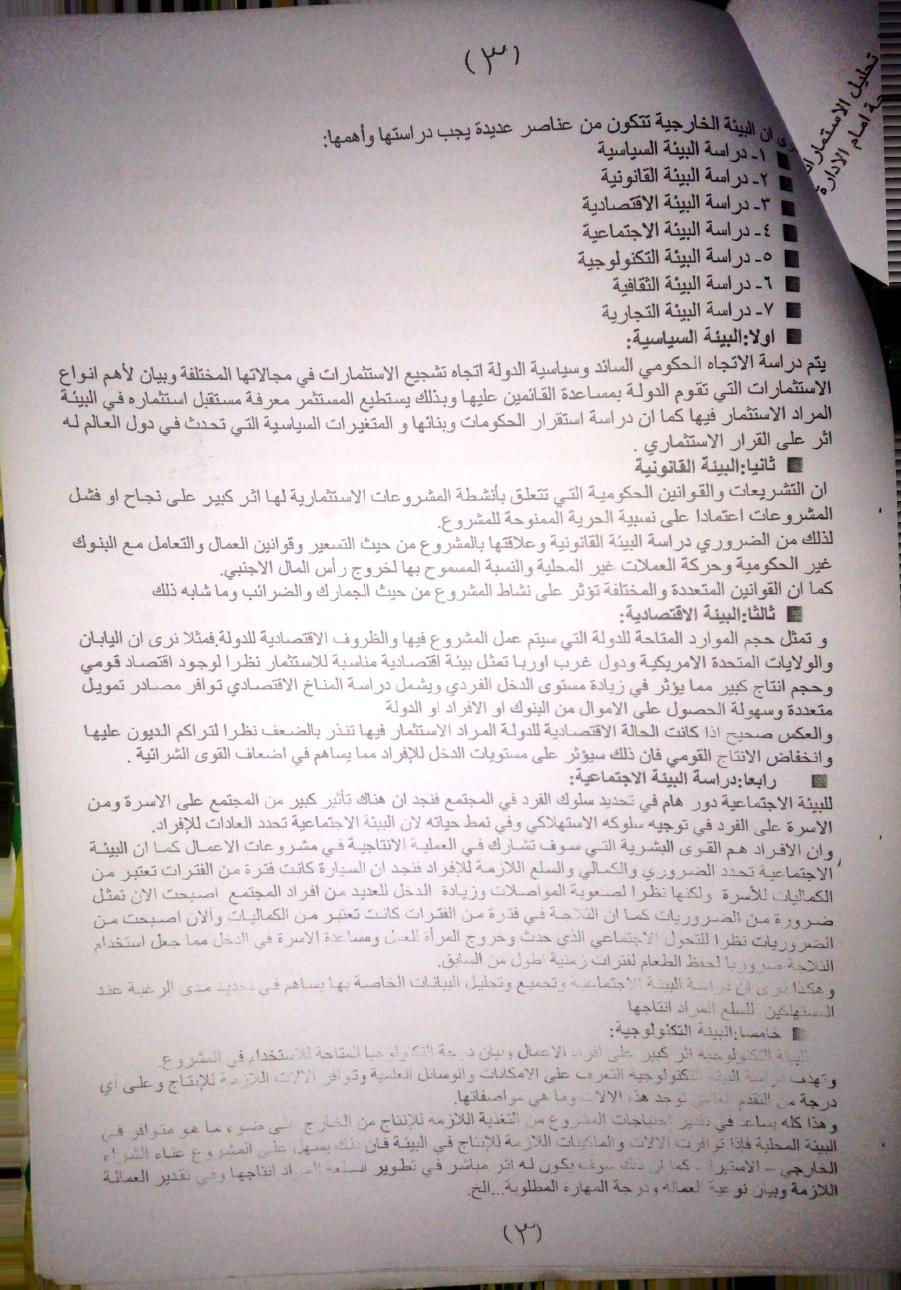 (٣)
تحليل الاستثمارات
امام الادارة
ان البيئة الخارجية تتكون من عناصر عديدة يجب دراستها وأهمها:
١- دراسة البيئة السياسية
٢- دراسة البيئة القانونية
٣- دراسة البيئة الاقتصادية
٤- دراسة البيئة الاجتماعية
٥- دراسة البيئة التكنولوجية
٦- دراسة البيئة الثقافية
٧- دراسة البيئة التجارية
اولا:البيئة السياسية:
يتم دراسة الاتجاه الحكومي السائد وسياسية الدولة اتجاه تشجيع الاستثمارات في مجالاتها المختلفة وبيان لأهم انواع
الاستثمارات التي تقوم الدولة بمساعدة القائمين عليها وبذلك يستطيع المستثمر معرفة مستقبل استثماره في البيئة
المراد الاستثمار فيها كما ان دراسة استقرار الحكومات وبنائها و المتغيرات السياسية التي تحدث في دول العالم له
اثر على القرار الاستثماري .
ثانيا:البيئة القانونية
ان التشريعات والقوانين الحكومية التي تتعلق بأنشطة المشروعات الاستثمارية لها اثر كبير على نجاح او فشل
المشروعات اعتمادا على نسبية الحرية الممنوحة للمشروع.
لذلك من الضروري دراسة البيئة القانونية وعلاقتها بالمشروع من حيث التسعير وقوانين العمال والتعامل مع البنوك
غير الحكومية وحركة العملات غير المحلية والنسبة المسموح بها لخروج رأس المال الاجنبي.
كما ان القوانين المتعددة والمختلفة تؤثر على نشاط المشروع من حيث الجمارك والضرائب وما شابه ذلك
ثالثا:البيئة الاقتصادية:
و تمثل حجم الموارد المتاحة للدولة التي سيتم عمل المشروع فيها والظروف الاقتصادية للدولة.فمثلا نرى ان اليابان
والولايات المتحدة الامريكية ودول غرب اوربا تمثل بيئة اقتصادية مناسبة للاستثمار نظرا لوجود اقتصاد قومي
وحجم انتاج كبير مما يؤثر في زيادة مستوى الدخل الفردي ويشمل دراسة المناخ الاقتصادي توافر مصادر تمويل
متعددة وسهولة الحصول على الاموال من البنوك او الافراد او الدولة
والعكس صحيح اذا كانت الحالة الاقتصادية للدولة المراد الاستثمار فيها تنذر بالضعف نظرا لتراكم الديون عليها
وانخفاض الانتاج القومي فان ذلك سيؤثر على مستويات الدخل للإفراد مما يساهم في اضعاف القوى الشرائية .
رابعا:دراسة البيئة الاجتماعية:
للبيئة الاجتماعية دور هام في تحديد سلوك الفرد في المجتمع فنجد ان هناك تأثير كبير من المجتمع على الاسرة ومن
الاسرة على الفرد في توجيه سلوكه الاستهلاكي وفي نمط حياته لان البيئة الاجتماعية تحدد العادات للإفراد.
وان الافراد هم القوى البشرية التي سوف تشارك في العملية الانتاجية في مشروعات الاعمال كما ان البيئة
الاجتماعية تحدد الضروري والكمالي والسلع اللازمة للإفراد فنجد ان السيارة كانت فترة من الفترات تعتبر من
الكماليات للأسرة ولكنها نظرا لصعوبة المواصلات وزيادة الدخل للعديد من افراد المجتمع اصبحت الان تمثل
ضرورة من الضروريات كما ان الثلاجة في فترة من الفترات كانت تعتبر من الكماليات والان اصبحت من
الضروريات نظرا للتحول الاجتماعي الذي حدث وخروج المرأة للعمل ومساعدة الاسرة في الدخل مما جعل استخدام
الثلاجة ضروريا لحفظ الطعام لفترات زمنية اطول من السابق.
وهكذا نرى ان دراسة البيئة الاجتماعية وتجميع وتحليل البيانات الخاصة بها يساهم في تحديد مدى الرغبة عند
المستهلكين للسلع المراد انتاجها
خامسا:البيئة التكنولوجية:
للبيئة التكنولوجية اثر كبير على الاعمال وبيان درجة التكنولوجيا المتاحة للاستخدام في المشروع.
وتهدف دراسة البيئة التكنولوجية التعرف على الامكانات والوسائل العلمية وتوافر الالات اللازمة للإنتاج وعلى أي
درجة من التقدم العلمي توجد هذه الالات وما هي مواصفاتها.
وهذا كله يساعد في تقدير احتياجات المشروع من التغذية اللازمه للإنتاج من الخارج على ضوء ما هو متوافر في
البيئة المحلية فاذا توافرت الالات والماكينات اللازمة للإنتاج في البيئة فان ذلك يسهل على المشروع عناء الشراء
الخارجي – الاستيراد - كما ان ذلك سوف يكون له اثر مباشر في تطوير السلعة المراد انتاجها وفي تقدير العمالة
اللازمة وبيان نوعية العمالة ودرجة المهارة المطلوبة...الخ.
(٣)